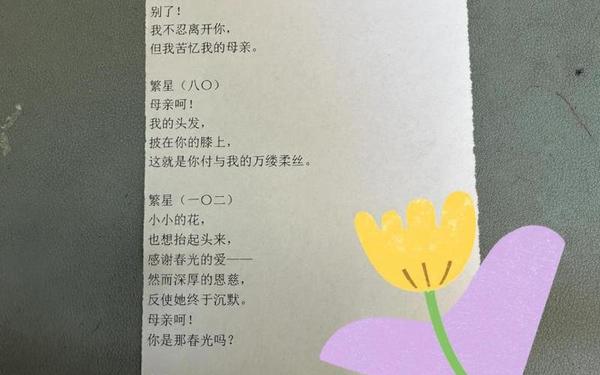 别了！
我不忍离开你，
但我苦忆我的母亲。
繁星（八〇）
母亲呵！
我的头发，
披在你的膝上，
这就是你付与我的万缕柔丝。
繁星（一〇二）
小小的花，
也想抬起头来，
感谢春光的爱——
然而深厚的恩慈，
反使她终于沉默。
母亲呵！
你是那春光吗？